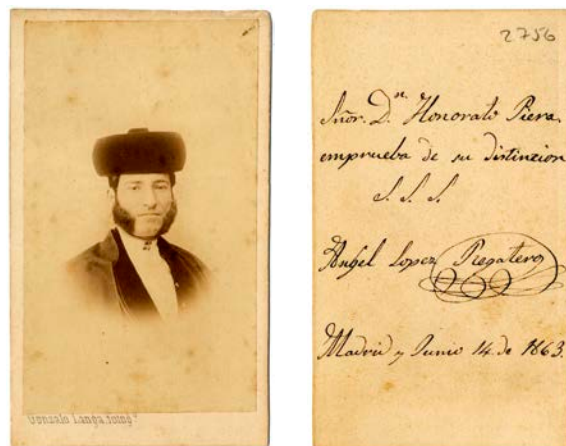 Gonzalo Langa, fotogº
2756
Señor. Dⁿ. Honorato Piera
emprueba de su distincion
S. S. S.
Angel Lopez Regatero
Madrid y Junio 14 de 1863.